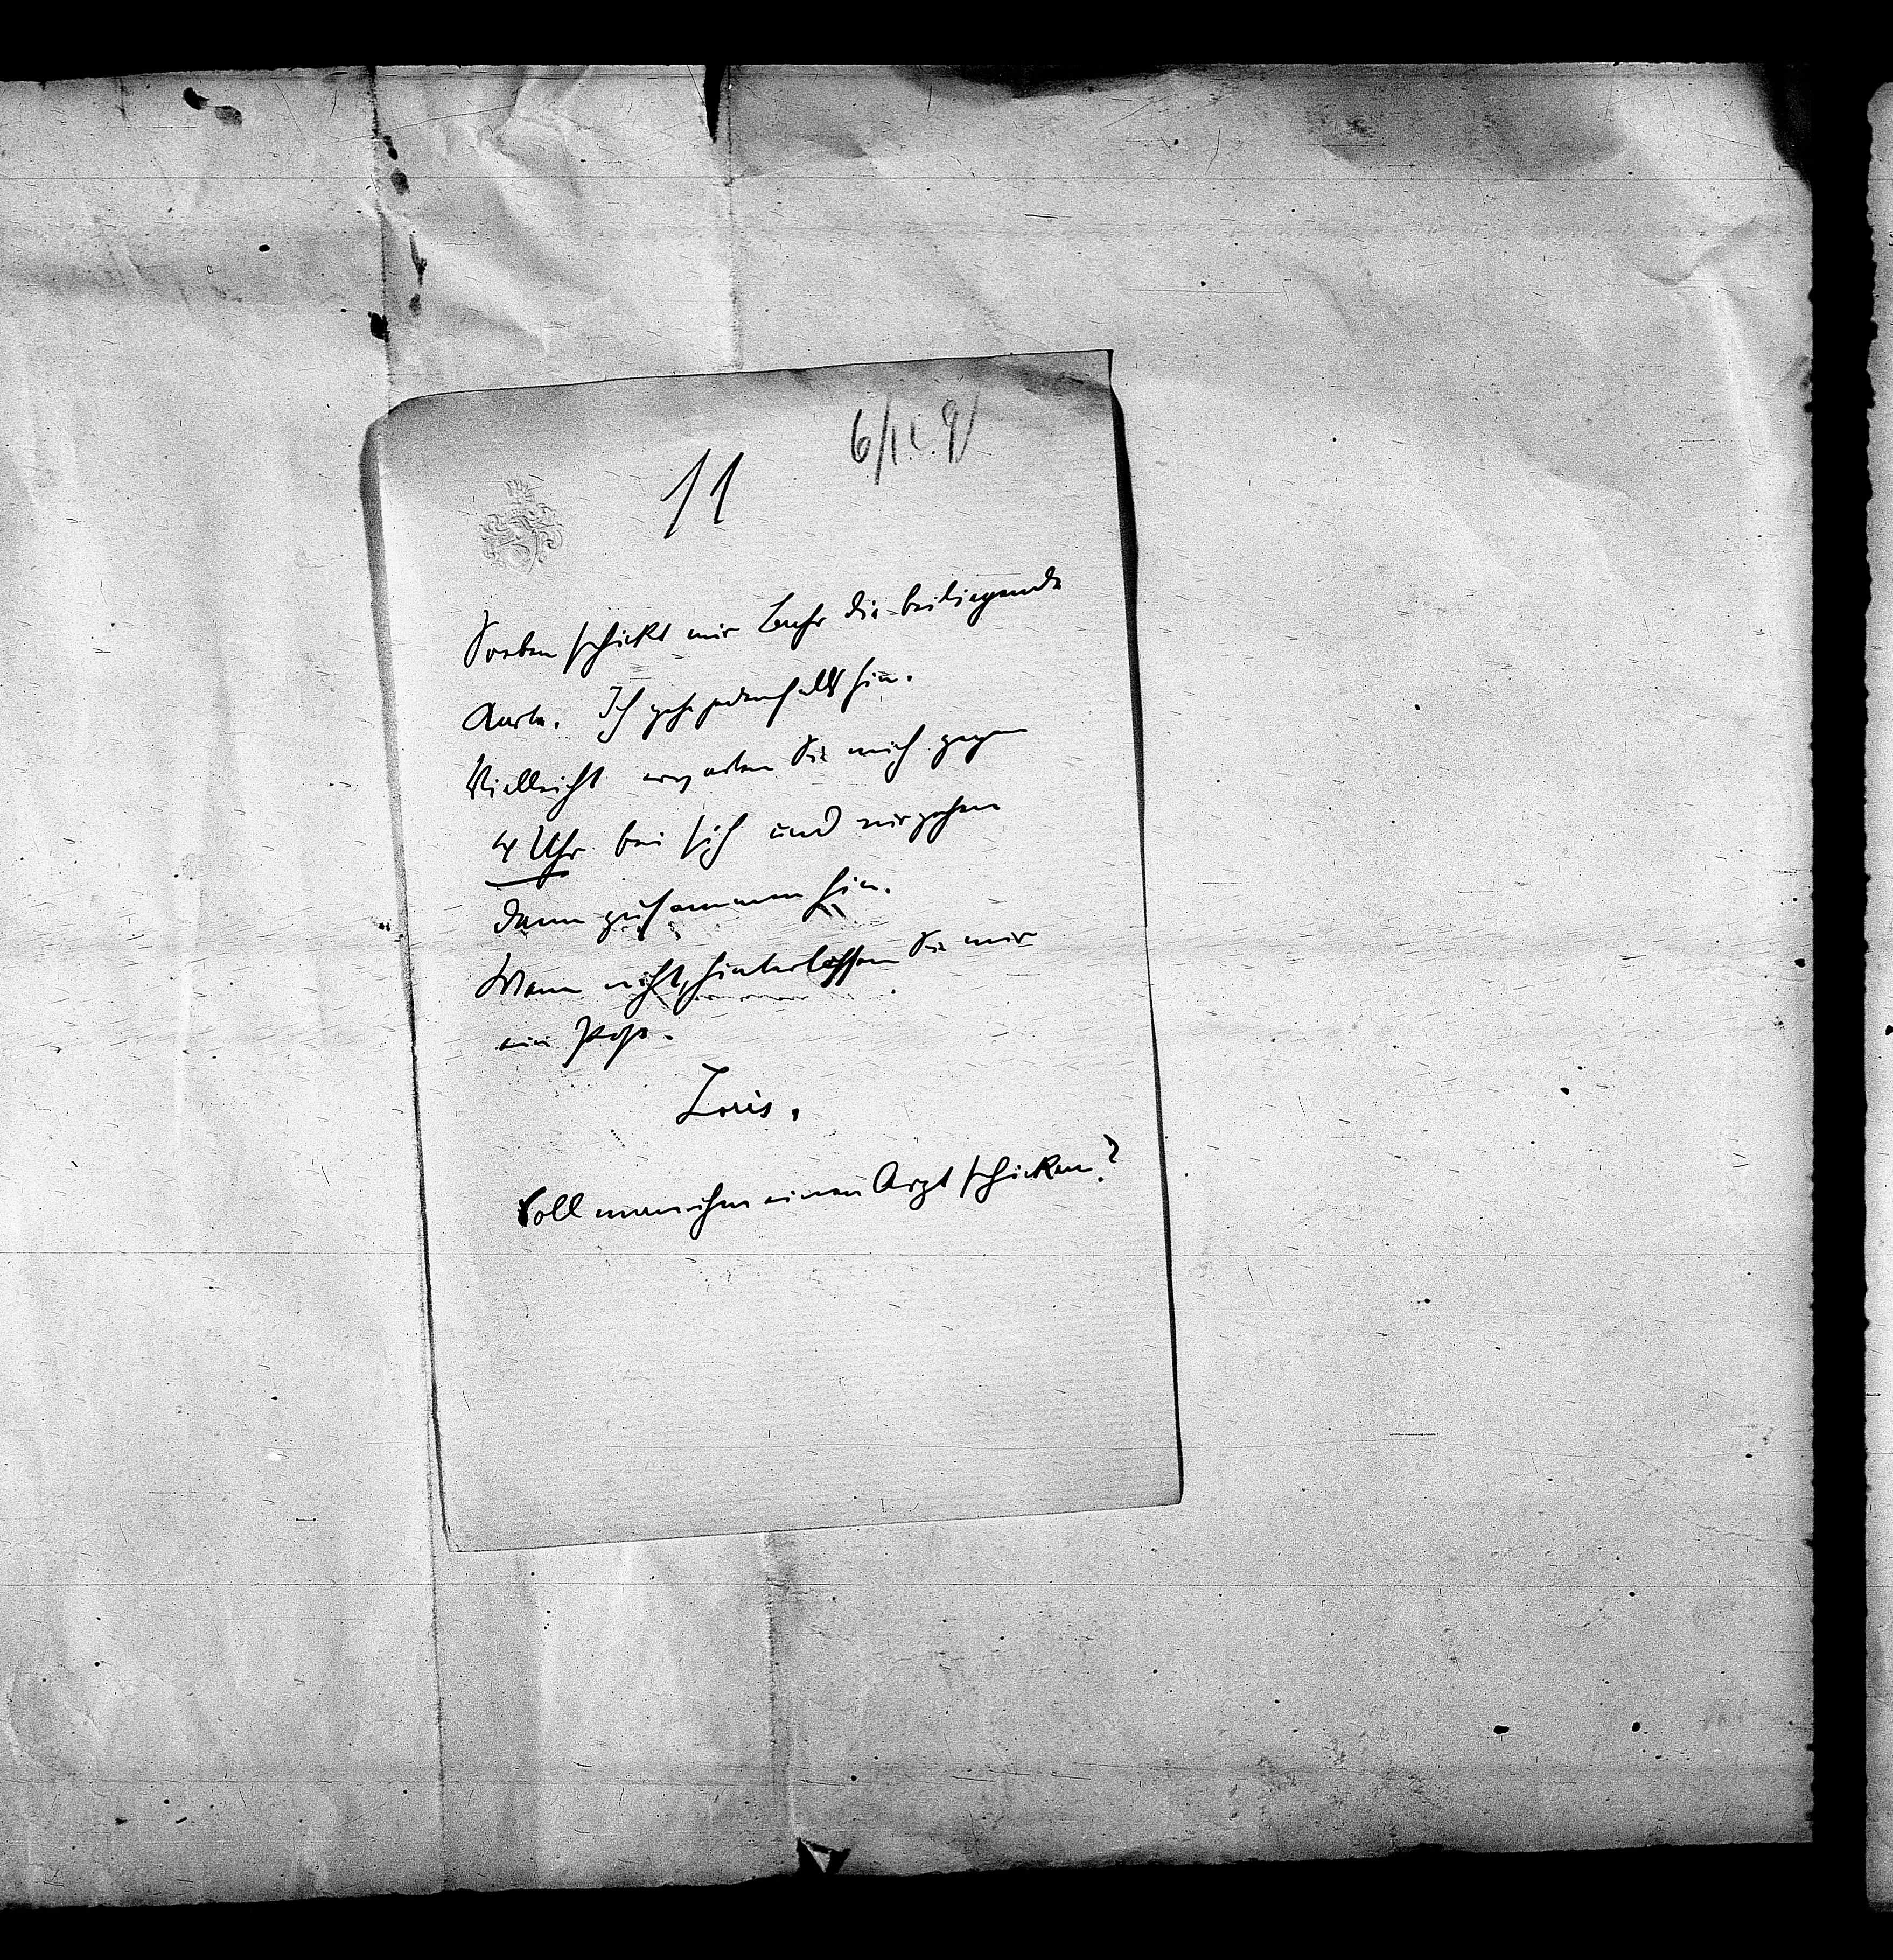 6/12. 91
11
Soeben schickt mir Bahr die beiliegende
Karte. Ich gehe jedenfalls hin.
Vielleicht erwarten Sie mich gegen
4 Uhr bei sich und wir gehen
dann zusammen hin.
Wenn nicht, hinterlassen Sie mir
ein
Loris.
Soll man ihm einen Arzt schicken?